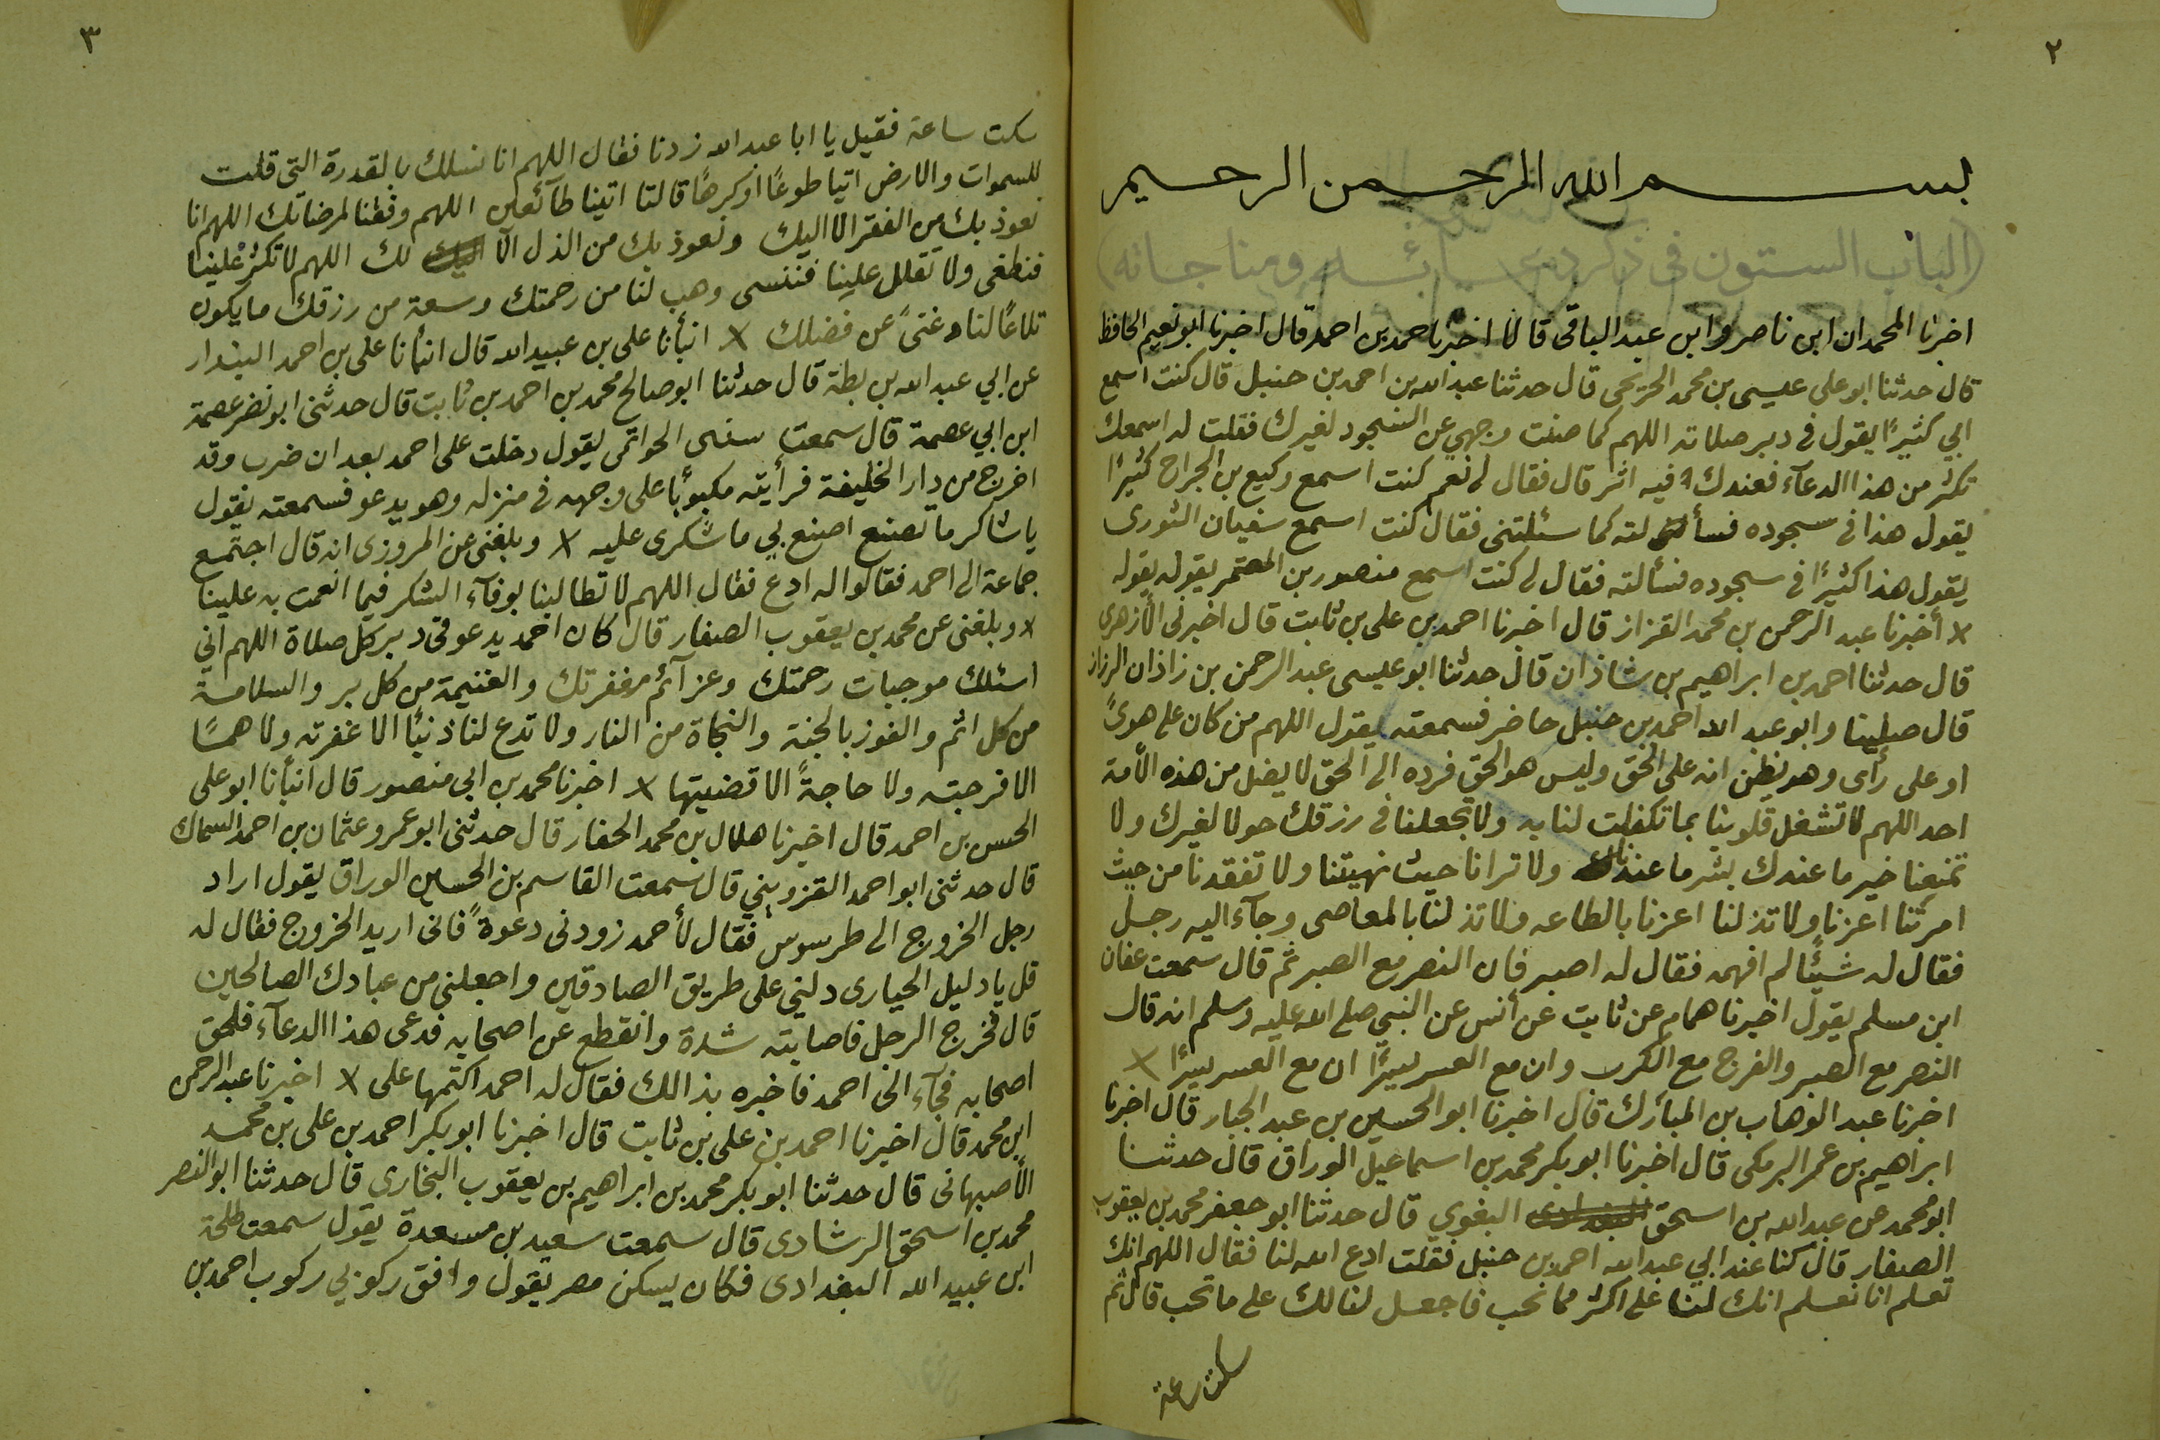 ٢
بسم الله الرحمن الرحيم
(الباب الستون في ذكر دعائه ومناجاته)
اخبرنا المحمدان ابن ناصر وابن عبد الباقى قالا اخبرنا حمد بن احمد قال اخبرنا ابو نعيم الحافظ
قال حدثنا ابو على عيسى بن محمد الجريحى قال حدثنا عبد الله بن احمد بن حنبل قال كنت اسمع
ابي كثيرًا يقول فى دبر صلاته اللهم كما صنت وجهي عن السجود لغيرك فقلت له اسمعك
تكثر من هذا الدعآء فعندك فيه اثر قال فقال لى نعم كنت اسمع وكيع بن الجراح كثيرًا
يقول هذا فى سجوده فسألته كما سئلتنى فقال كنت اسمع سفيان الثورى
يقول هذا كثيرًا فى سجوده فسألته فقال لى كنت اسمع منصور بن المعتمر يقوله يقوله
× أخبرنا عبد الرحمن بن محمد القزاز قال اخبرنا احمد بن على بن ثابت قال اخبرنى الأزهرى
قال حدثنا احمد بن ابراهيم بن شاذان قال حدثنا ابو عيسى عبد الرحمن بن زاذان الرزاز
قال صلينا وابو عبد الله احمد بن حنبل حاضر فسمعته يقول اللهم من كان على هوىً
او على رأى وهو يظن انه على الحق وليس هو الحق فرده الى الحق لا يضل من هذه الأمة
احد اللهم لا تشغل قلوبنا بما تكفلت لنا به ولا تجعلنا فى رزقك حولا لغيرك ولا
تمنعنا خير ما عندك بشر ما عندنا ولا ترانا حيث نهيتنا ولا تفقدنا من حيث
امرتنا اعزنا ولا تذلنا اعزنا بالطاعه ولا تذلنا بالمعاصى وجآء اليه رجل
فقال له شيئًا لم افهمه فقال له اصبر فان النصر مع الصبر ثم قال سمعت عفان
ابن مسلم يقول اخبرنا همام عن ثابت عن أنس عن النبى صلى الله عليه وسلم انه قال
النصر مع الصبر والفرج مع الكرب وان مع العسر يسرًا ان مع العسر يسرًا ×
اخبرنا عبد الوهاب بن المبارك قال اخبرنا ابو الحسين بن عبد الجبار قال اخبرنا
ابراهيم بن عمر البرمكى قال اخبرنا ابو بكر محمد بن اسماعيل الوراق قال حدثنا
ابو محمد عن عبد الله بن اسحق البغوي قال حدثنا ابو جعفر محمد بن يعقوب
الصفار قال كنا عند ابي عبد الله احمد بن حنبل فقلت ادع الله لنا فقال اللهم انك
تعلم انا نعلم انك لنا على اكثر مما نحب فاجعل لنا لك على ما تحب قال ثم
سكت ساعة
٣
سكت ساعة فقيل يا ابا عبد الله زدنا فقال اللهم انا نسلك بالقدرة التى قلت
للسموات والارض اتيا طوعًا اوكرهًا قالتا اتينا طآئعين اللهم وفقنا لمرضاتك اللهم انا
نعوذ بك من الفقر الا اليك ونعوذ بك من الذل الا لك اللهم لا تكثر علينا
فنطغى ولا تقلل علينا فننسى وهب لنا من رحمتك وسعة من رزقك ما يكون
بلاغًا لنا وغنىً عن فضلك × انبأنا على بن عبيد الله قال انبأنا على بن احمد البندار
عن ابي عبد الله بن بطة قال حدثنا ابو صالح محمد بن احمد بن ثابت قال حدثنى ابو نصر عصمة
ابن ابي عصمة قال سمعت الحواتمى يقول دخلت على احمد بعد ان ضرب وقد
اخرج من دار الخليفة فرأيته مكبوبًا على وجهه فى منزله وهو يدعو فسمعته يقول
يا شاكر ما تصنع اصنع بي ما شكرى عليه × وبلغنى عن المروزى انه قال اجتمع
جماعة الى احمد فقالوا له ادع فقال اللهم لا تطالبنا بوفآء الشكر فيما انعمت به علينا
× وبلغنى عن محمد بن يعقوب الصفار قال كان احمد يدعو فى دبر كل صلاة اللهم اني
اسئلك موجبات رحمتك وعزآئم مغفرتك والغنيمة من كل بر والسلامة
من كل اثم والفوز بالجنة والنجاة من النار ولا تدع لنا ذنبًا الا غفرته ولا همًا
الا فرجته ولا حاجةً الا قضيتها × اخبرنا محمد بن ابي منصور قال انبأنا ابو على
الحسن بن احمد قال اخبرنا هلال بن محمد الحفار قال حدثنى ابو عمرو عثمان بن احمد السماك
قال حدثنى ابو احمد القزوينى قال سمعت القاسم بن الحسين الوراق يقول اراد
رجل الخروج الى طرسوس فقال لأحمد زودنى دعوةً فانى اريد الخروج فقال له
قل يا دليل الحيارى دلني على طريق الصادقين واجعلنى من عبادك الصالحين
قال فخرج الرجل فاصابته شدة وانقطع عن اصحابه فدعى هذا الدعآء فلحق
اصحابه فجآء الى احمد فاخبره بذالك فقال له احمد اكتمها على × اخبرنا عبد الرحمن
ابن محمد قال اخبرنا احمد بن على بن ثابت قال اخبرنا ابو بكر احمد بن على بن محمد
الأصبهانى قال حدثنا ابو بكر محمد بن ابراهيم بن يعقوب البخارى قال حدثنا ابو النصر
محمد بن اسحق الرشادى قال سمعت سعيد بن مسعدة يقول سمعت طلحة
ابن عبيد الله البغدادى فكان يسكن مصر يقول وافق ركوبي ركوب احمد بن